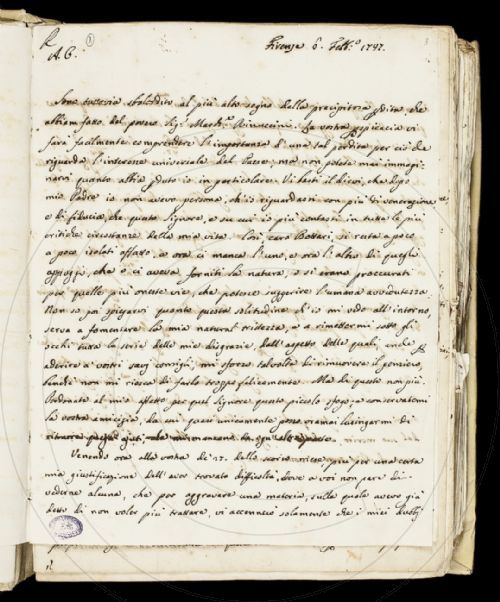 R
A. C.
Firenze 6. Febb.º 1747.
Sono tuttavia sbalordito al più alto segno della precipitosa pdita, che
abbiam fatto del povero Sig.r March.e Rinuccini. La vostra pspicacia vi
farà facilmente comprendere l'importanza d'una tal perdita per ciò che
riguarda l'interesse universale del Paese; ma non potete mai immagi-
narvi quanto abbia pduto io in particolare. Vi basti il dirvi, che dopo
mio Padre io non avevo persona, ch'io riguardassi con più di venerazione
e di fiducia, che questo Signore, e su cui io più contassi in tutte le più
critiche circostanze della mia vita. Così caro Bottari, si resta a poco
a poco isolati affatto, e ora ci manca l'uno, e ora l'altro di quegli
appoggi, che o ci aveva forniti la natura, o si erano procacciati
per quelle più oneste vie, che potesse suggerire l'umana avvedutezza
Non so poi spiegarvi quanto questa solitudine ch'io mi vedo all'intorno,
serva a fomentare la mia natural tristezza, e a rimettermi sotto gli
occhi tutta la serie delle mie disgrazie, dall'aspetto delle quali, anche p
aderire a vostri savj consigli, mi sforzo talvolta di rimuovere il pensiero,
benchè non mi riesca di farlo troppo felicemente. Ma di questo non più.
Perdonate al mio affetto per quel Signore questo piccolo sfogo, e conservatemi
la vostra amicizia, da cui quasi unicamente posso oramai lusingarmi di
ritrarre
Venendo ora alla vostra de' 27. dello scorso mese, più per una certa
mia giustificazione dell'aver trovate difficultà, dove a voi non pare di
vederne alcuna, che per aggravare una materia, sulla quale avevo già
detto di non voler più trattare, vi accennerò solamente che i miei dubbj